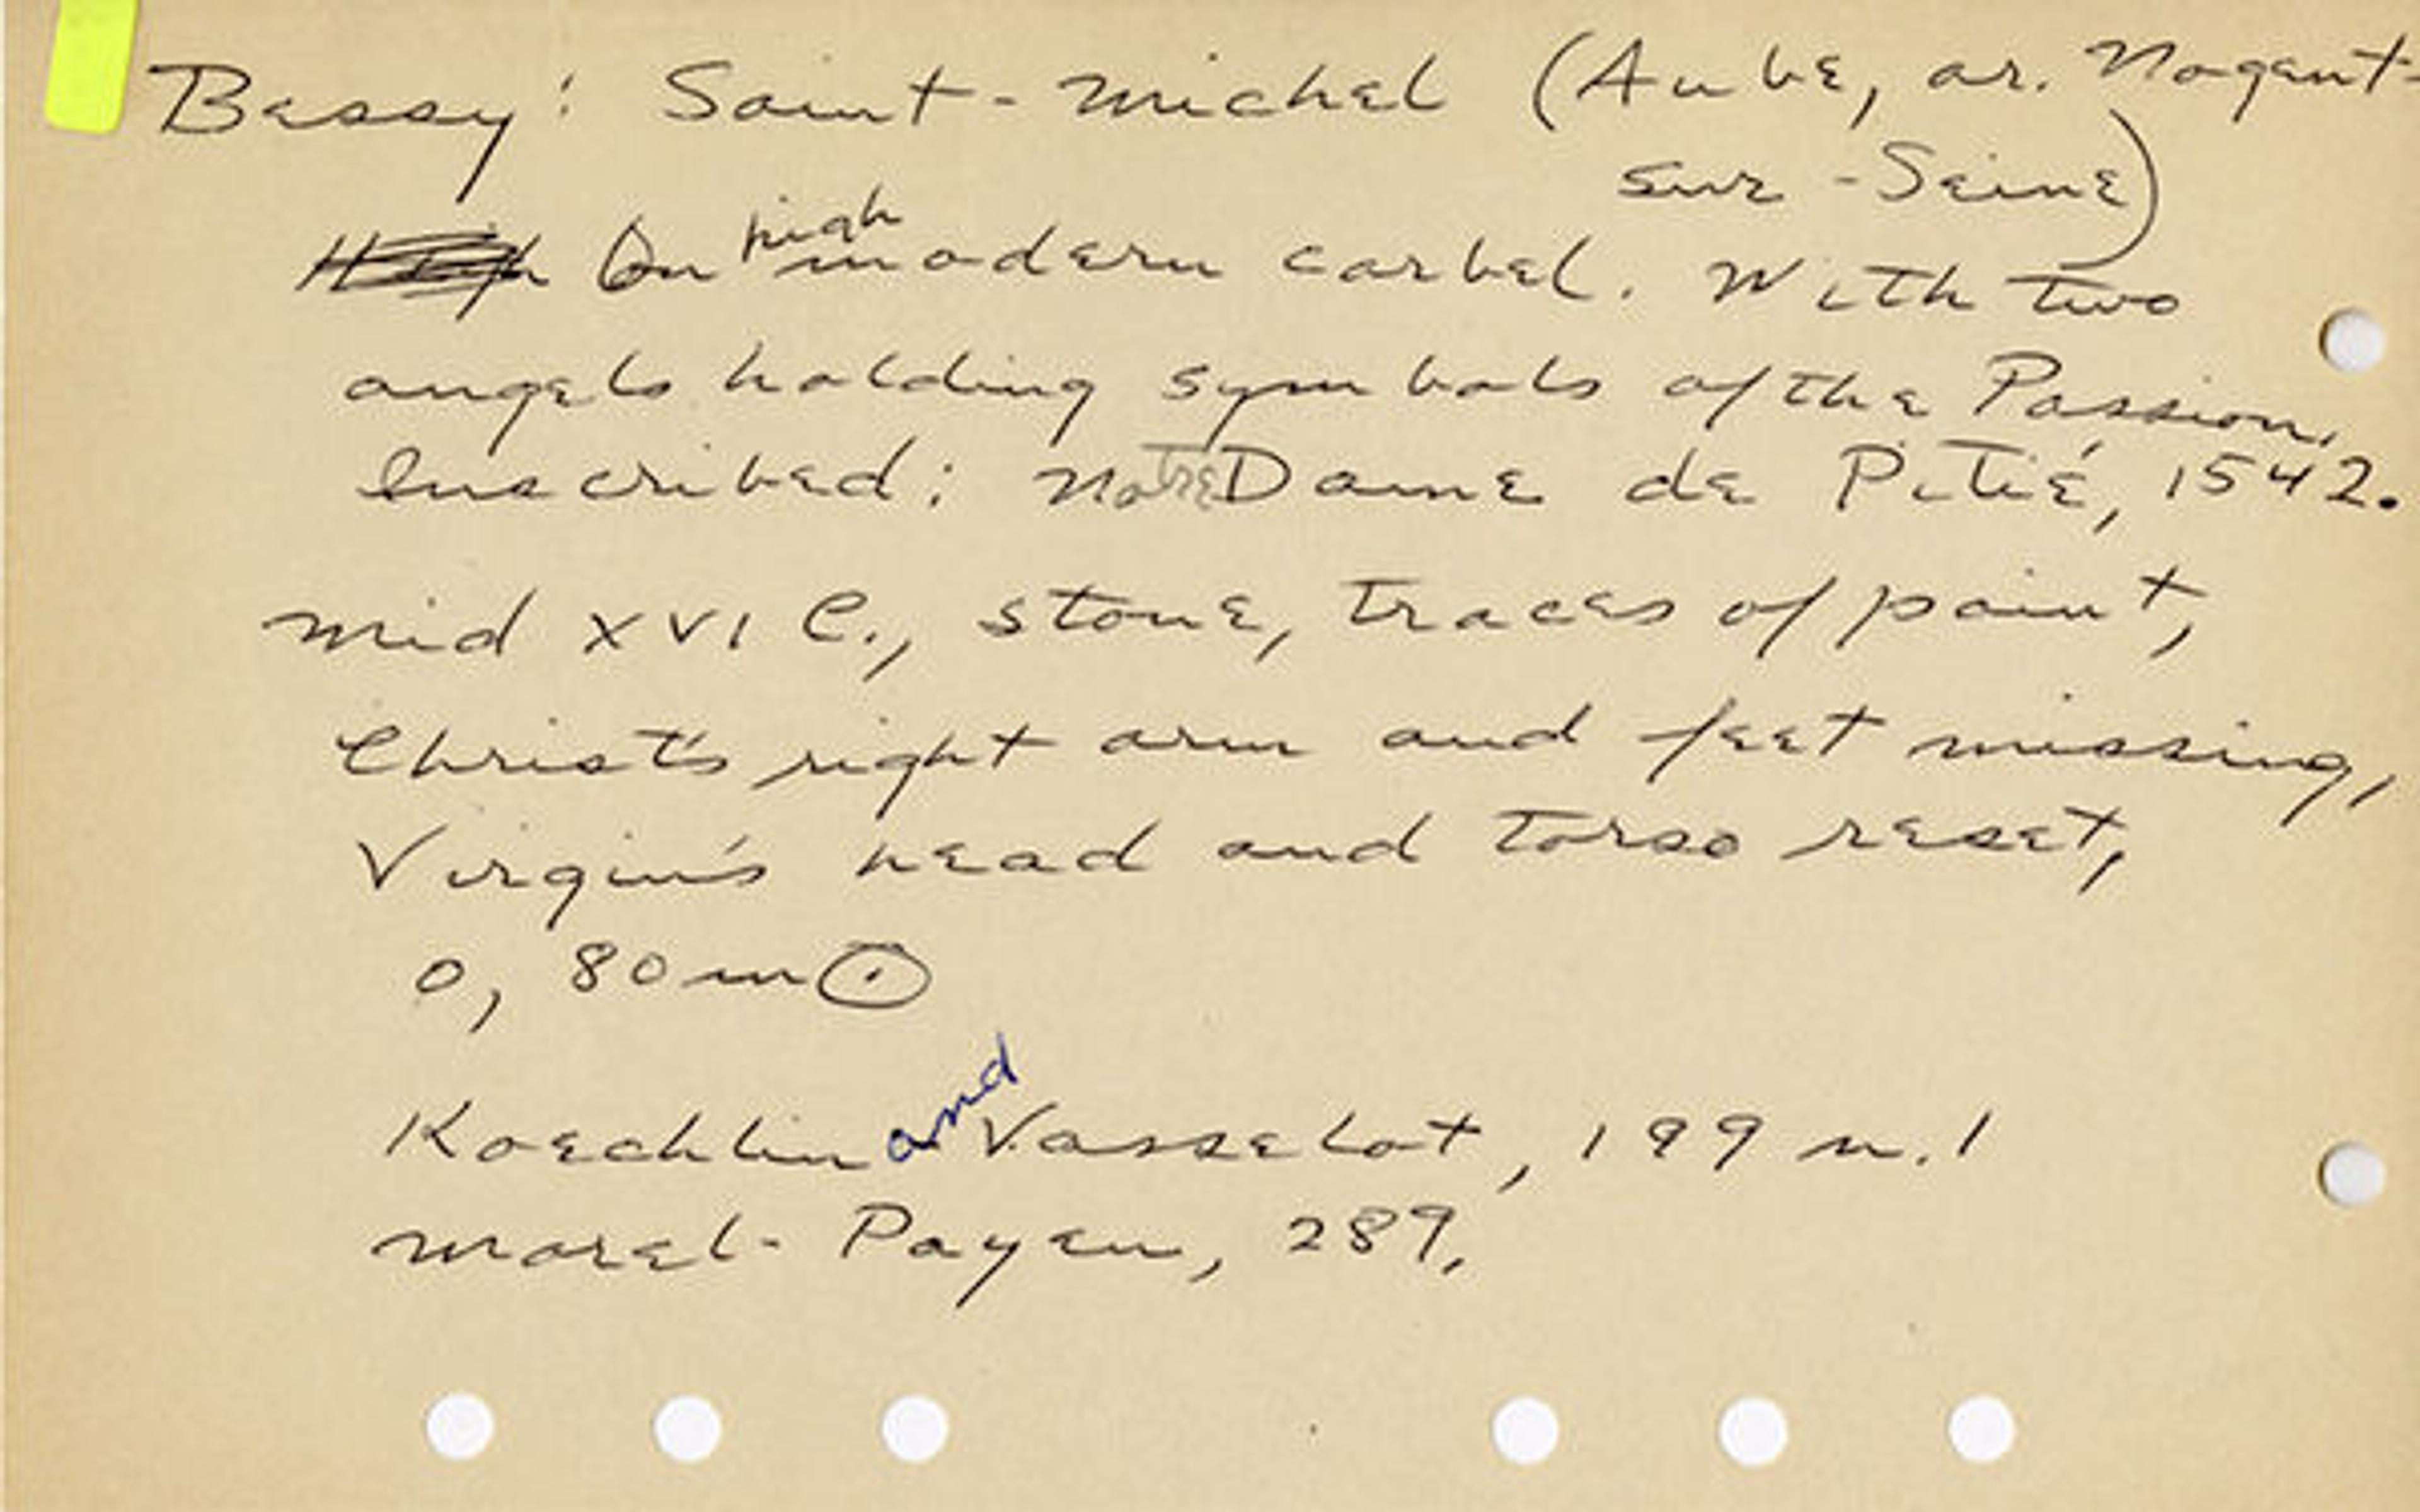 Bessy: Saint-Michel (Aube, ar. Nogent-
sur-Seine)
On high modern corbel. With two
angels holding symbols of the Passion.
Inscribed: Notre Dame de Pitié, 1542.
Mid XVI C., stone, traces of paint,
Christ's right arm and feet missing,
Virgin's head and torso reset,
0,80m ⊙
Koechlin and Vasselot, 199 n.1
Morel-Payen, 289.